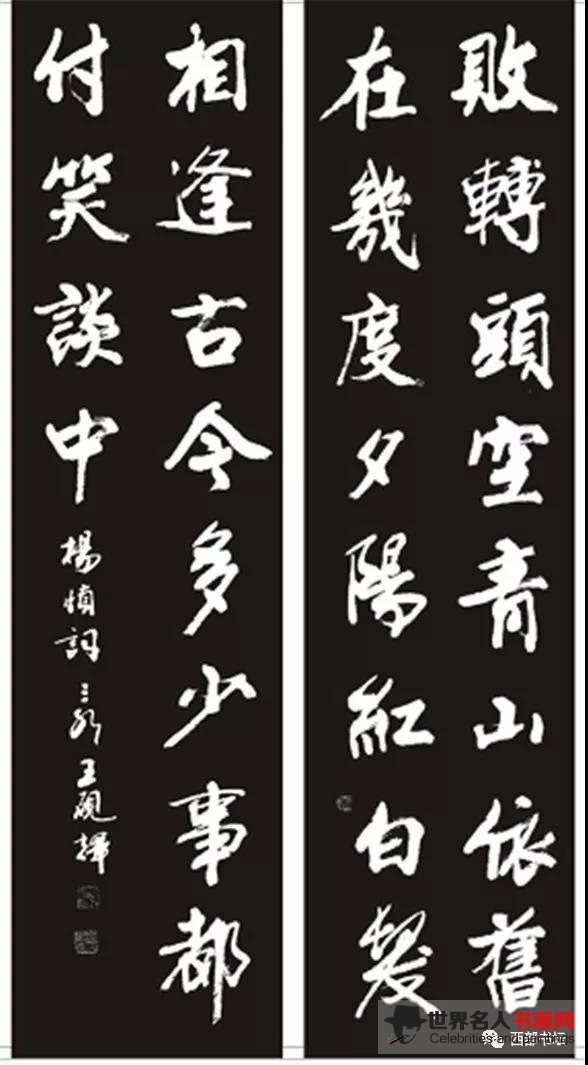 敗轉頭空青山依舊
在幾度夕陽紅白髮
相逢古今多少事都
付笑談中
楊慎詞 王硯輝
世界名人书画网
Celebrities and paintings
西部书坛